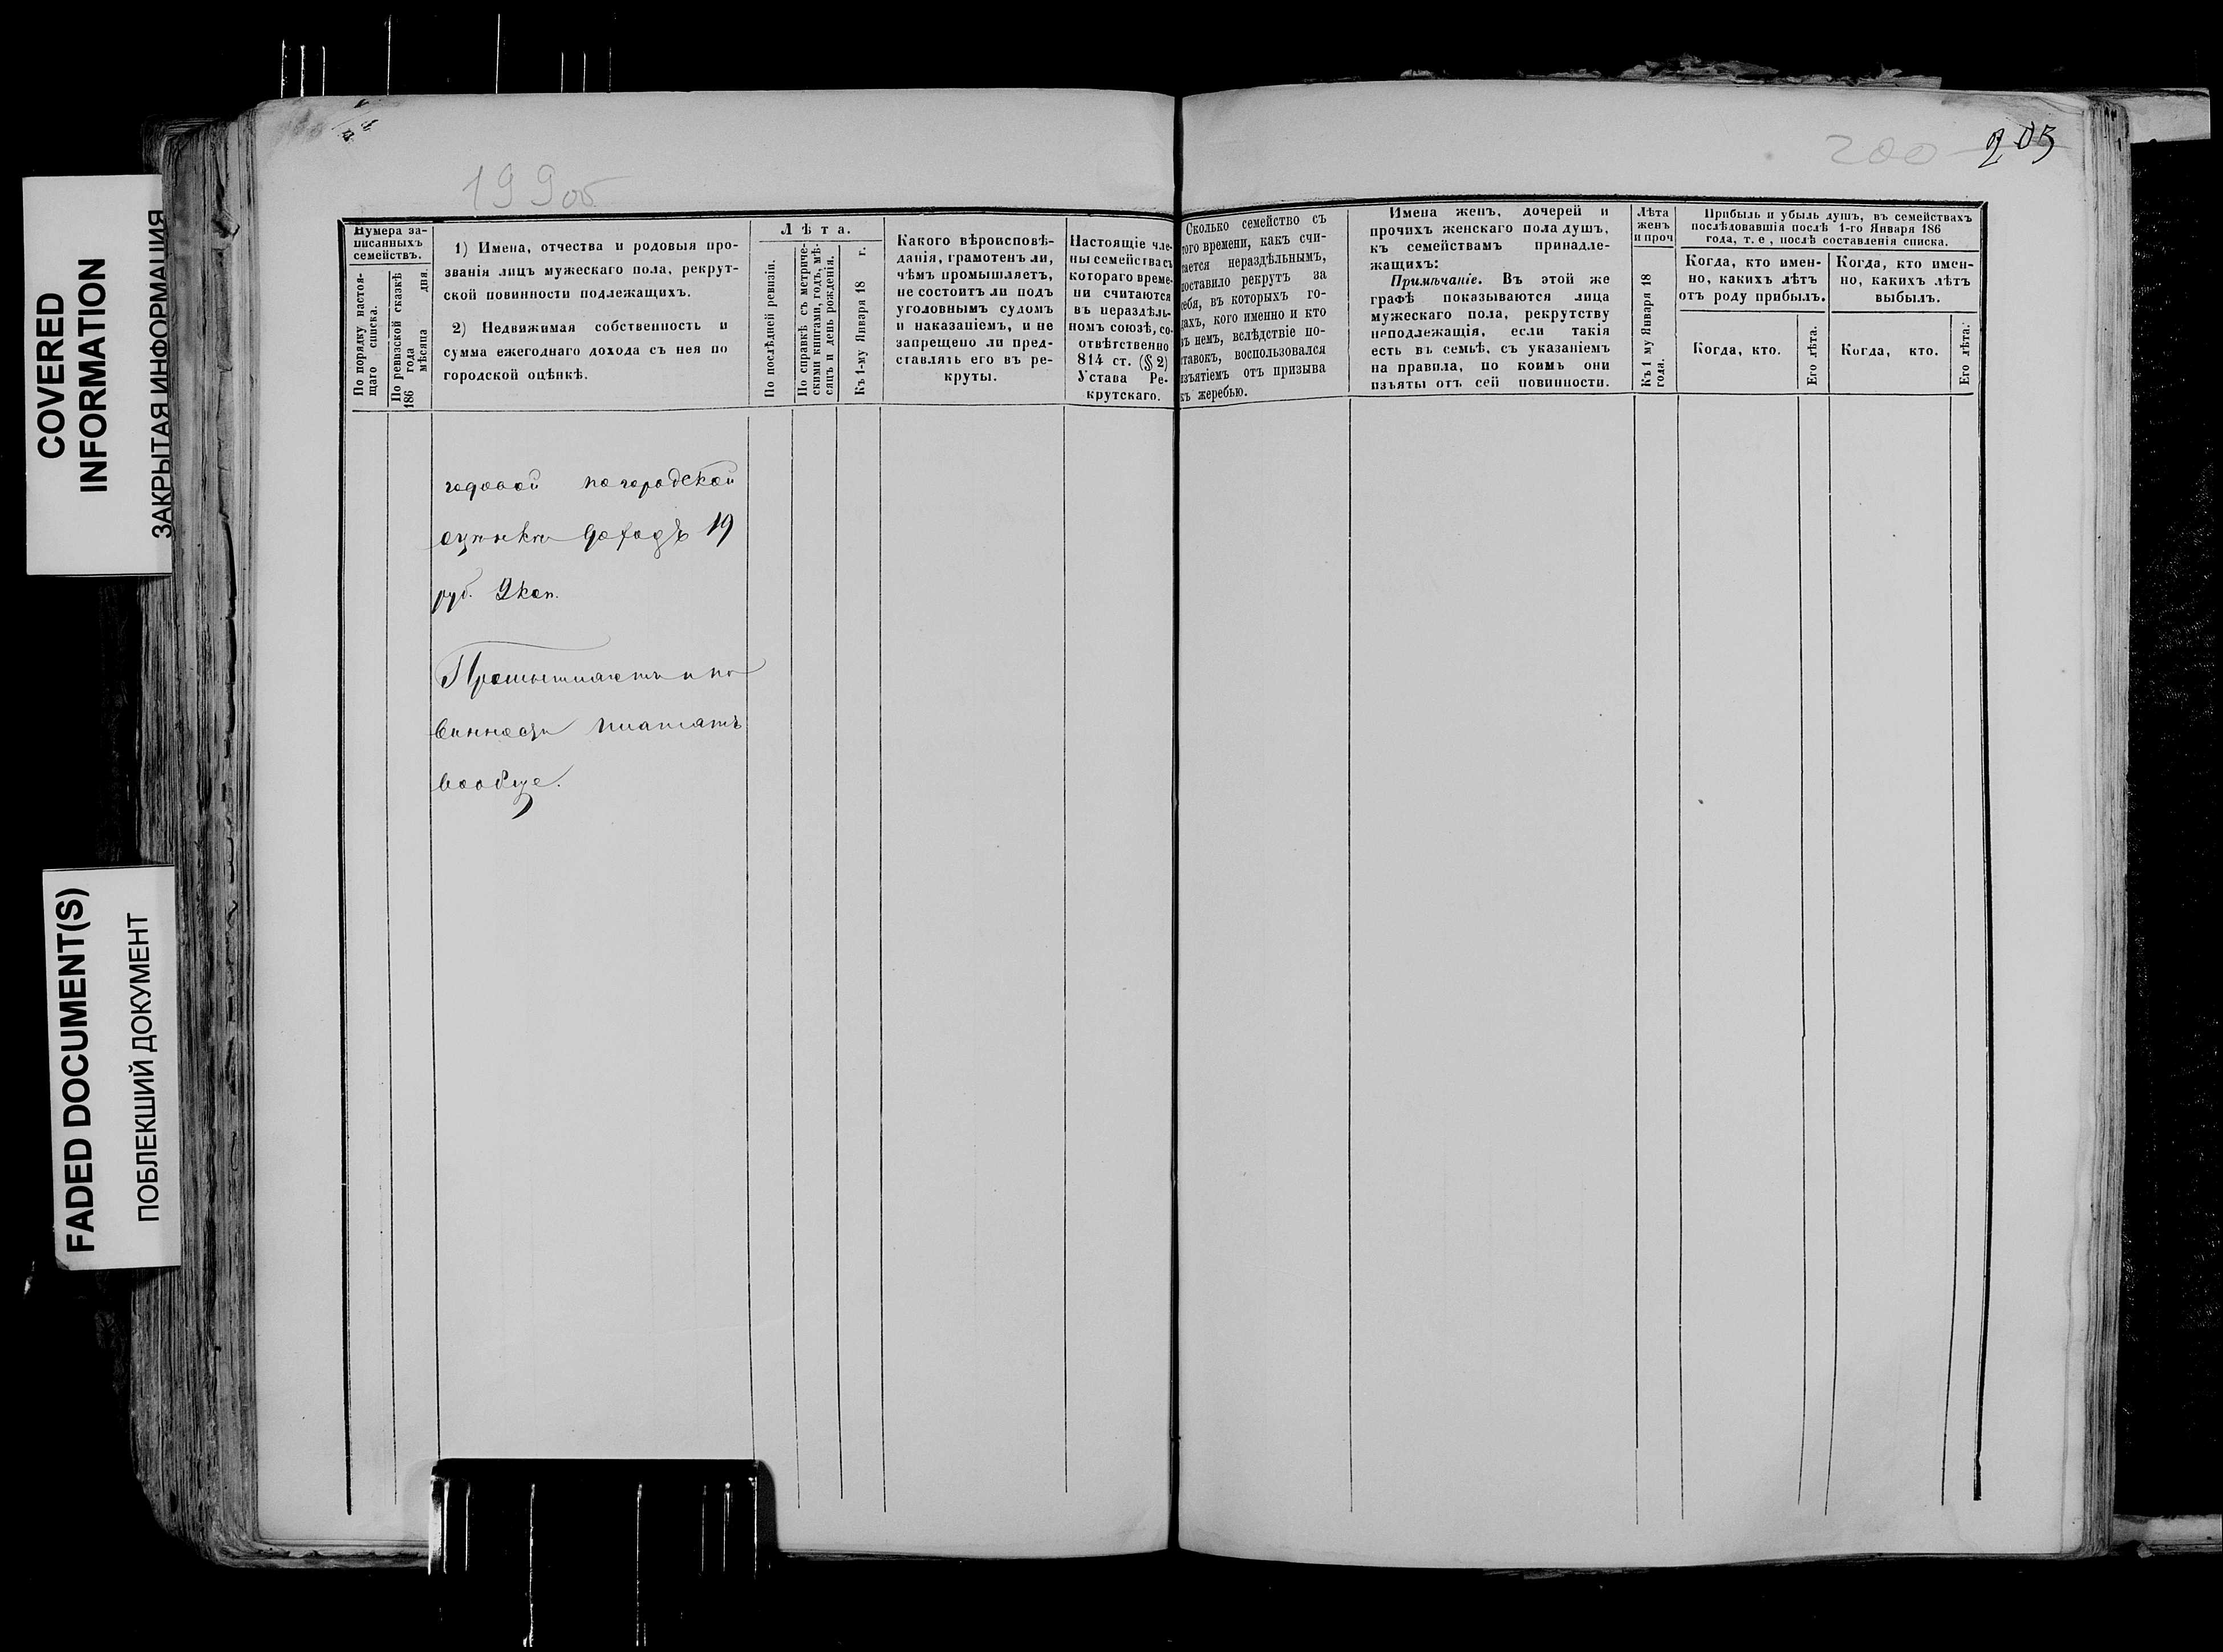 COVERED
INFORMATION
ЗАКРЫТАЯ ИНФОРМАЦИЯ
FADED DOCUMENT(S)
ПОБЛЕКШИЙ ДОКУМЕНТ
199об
Нумера за-
писанныхъ
семействъ.
По порядку настоя-
щаго списка.
По ревизской сказкѣ
186 года
мѣсяца дня.
1) Имена, отчества и родовыя про-
званія лицъ мужескаго пола, рекрут-
ской повинности подлежащихъ.
2) Недвижимая собственность и
сумма ежегоднаго дохода съ нея по
городской оцѣнкѣ.
Лѣта.
По послѣдней ревизіи.
По справкѣ съ метриче-
скими книгами, годъ, мѣ-
сяцъ и день рожденія.
Къ 1-му Января 18 г.
Какого вѣроисповѣ-
данія, грамотенъ ли,
чѣмъ промышляетъ,
не состоитъ ли подъ
уголовнымъ судомъ
и наказаніемъ, и не
запрещено ли пред-
ставлять его въ ре-
круты.
Настоящіе чле-
ны семейства съ
котораго време-
ни считаются
въ нераздѣль-
номъ союзѣ, со-
отвѣтственно
814 ст. (§ 2)
Устава Ре-
крутскаго.
годовой по городской
оцѣнки доходъ 19
руб. 2 коп.
Промышляетъ и по
винности платятъ
вообще.
200 203
Сколько семейство съ
того времени, какъ счи-
тается нераздѣльнымъ,
поставило рекрутъ за
себя, въ которыхъ го-
дахъ, кого именно и кто
въ немъ, вслѣдствіе по-
ставокъ, воспользовался
изъятіемъ отъ призыва
къ жеребью.
Имена женъ, дочерей и
прочихъ женскаго пола душъ,
къ семействамъ принадле-
жащихъ:
Примѣчаніе. Въ этой же
графѣ показываются лица
мужескаго пола, рекрутству
неподлежащія, если такія
есть въ семьѣ, съ указаніемъ
на правила, по коимъ они
изъяты отъ сей повинности.
Лѣта
женъ
и проч
Къ 1 му Января 18
года.
Прибыль и убыль душъ, въ семействахъ
послѣдовавшія послѣ 1-го Января 186
года, т. е, послѣ составленія списка.
Когда, кто имен-
но, какихъ лѣтъ
отъ роду прибылъ.
Когда, кто.
Его лѣта.
Когда, кто имен-
но, какихъ лѣтъ
выбылъ.
Когда, кто.
Его лѣта.